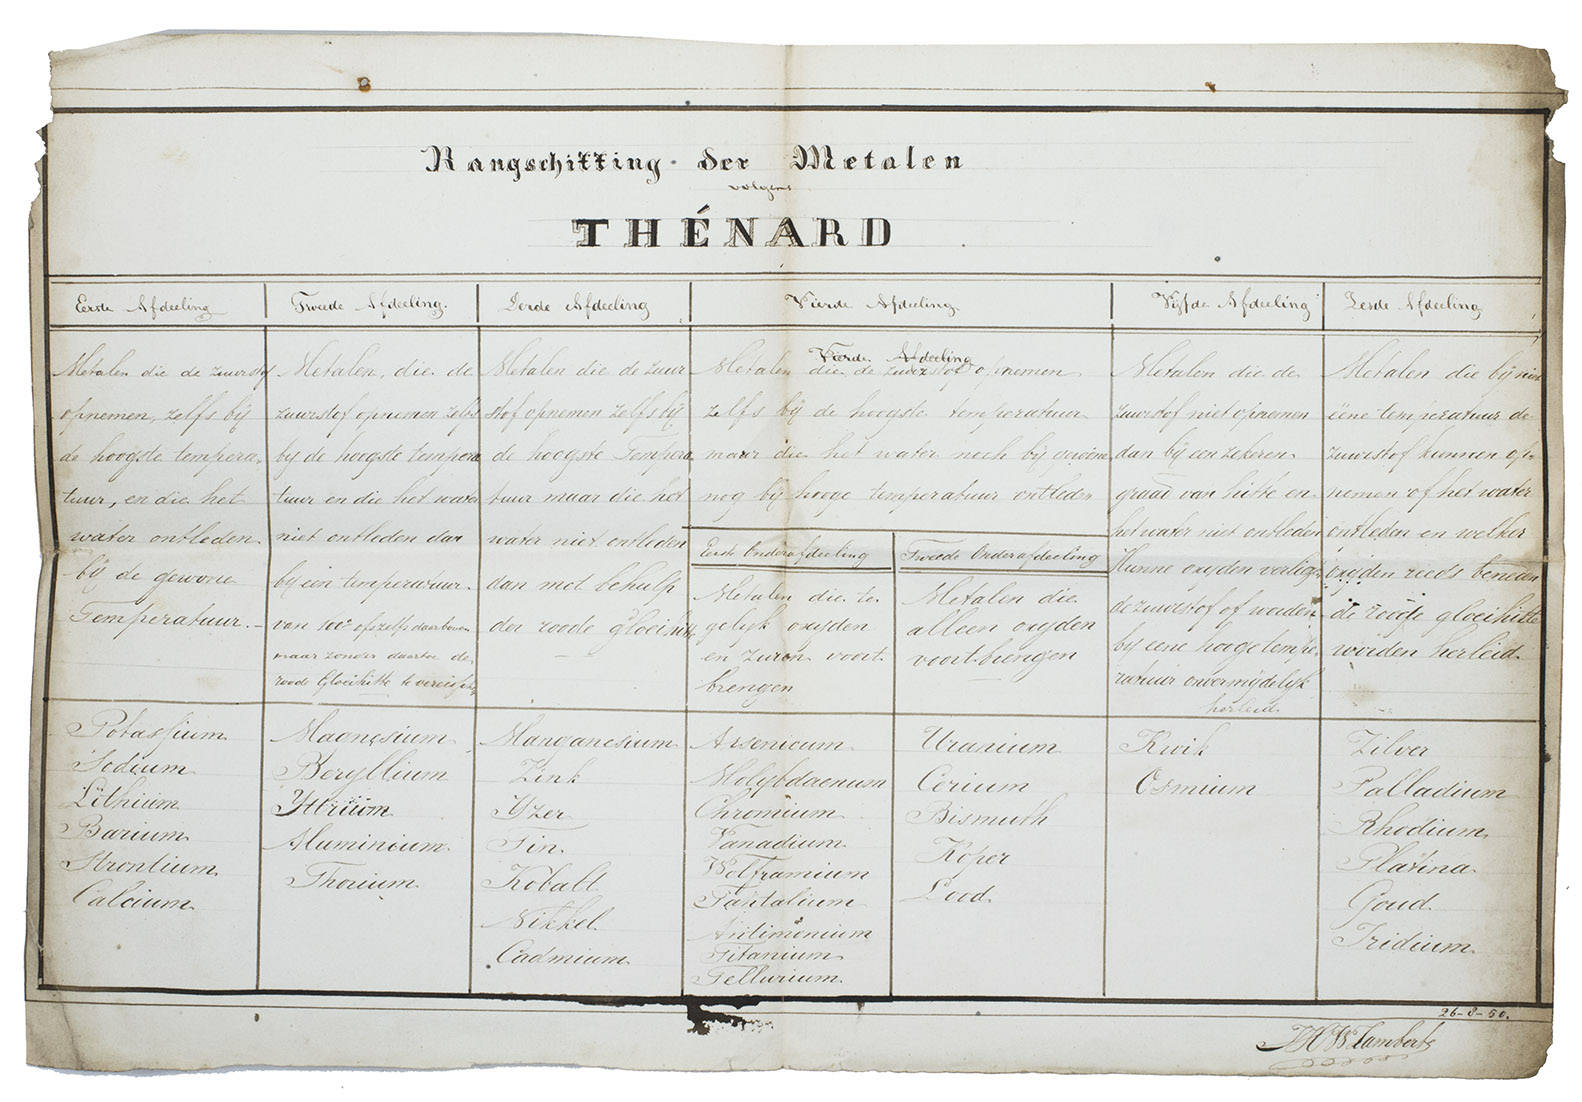 Rangschikking der Metalen
volgens
THÉNARD
Eerste Afdeeling
Metalen die de zuurstof
opnemen, zelfs bij
de hoogste tempera-
tuur, en die het
water ontleden
bij de gewone
Temperatuur.
Potassium
Sodium
Lithium
Barium
Strontium
Calcium
Tweede Afdeeling.
Metalen, die de
zuurstof opnemen zelfs
bij de hoogste tempera
tuur en die het water
niet ontleden dan
bij een temperatuur
van 100° of zelfs daarboven
maar zonder daartoe de
roode Gloeihitte te vereischen
Magnesium
Beryllium
Yttrium
Aluminium
Thorium
Derde Afdeeling
Metalen die de zuur
stof opnemen zelfs bij
de hoogste Tempera
tuur maar die het
water niet ontleden
dan met behulp
der roode gloeihitte
Manganesium
Zink
Yzer
Tin
Kobalt
Nikkel
Cadmium
Vierde Afdeeling.
Vierde Afdeeling
Metalen die de zuurstof opnemen
zelfs bij de hoogste temperatuur
maar die het water noch bij gewone
nog bij hooge temperatuur ontleden
Eerste Onderafdeeling
Metalen die te
gelijk oxijden
en zuren voort
brengen
Arsenicum
Molybdaenum
Chromium
Vanadium
Wolframium
Tantalium
Antimonium
Titanium
Tellurium
Tweede Onderafdeeling
Metalen die
alleen oxijden
voortbrengen
Uranium
Cerium
Bismuth
Koper
Lood
Vijfde Afdeeling
Metalen die de
zuurstof niet opnemen
dan bij een zekeren
graad van hitte en
het water niet ontleden
Hunne oxijden
de zuurstof of worden
bij eene hooge tempe
ratuur onvermijdelijk
herleid
Kwik
Osmium
Zesde Afdeeling
Metalen die bij
eene temperatuur de
zuurstof kunnen op-
nemen of het water
ontleden en welker
oxijden reeds beneden
de roode gloeihitte
worden herleid
Zilver
Palladium
Rhodium
Platina
Goud
Iridium
26-8-50.
JHW Lamberts